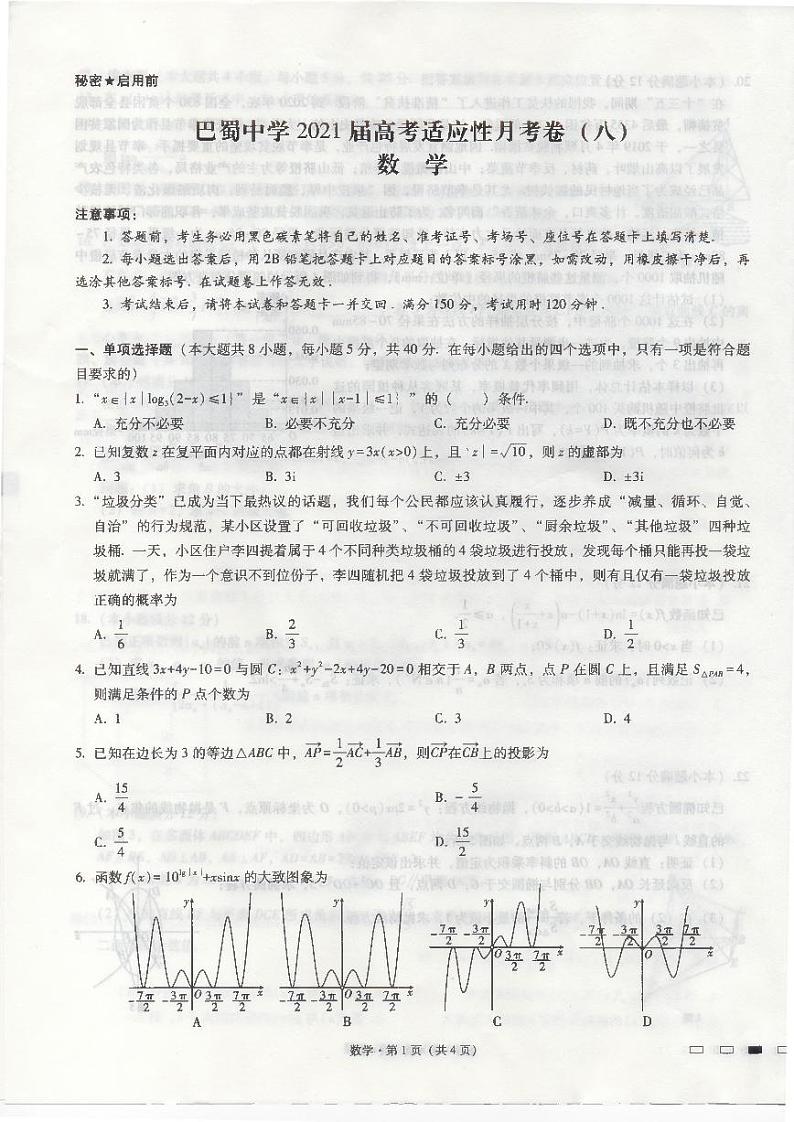 秘密★启用前
巴蜀中学 2021 届高考适应性月考卷（八）
数 学
注意事项：
1. 答题前，考生务必用黑色碳素笔将自己的姓名、准考证号、考场号、座位号在答题卡上填写清楚.
2. 每小题选出答案后，用 2B 铅笔把答题卡上对应题目的答案标号涂黑，如需改动，用橡皮擦干净后，再
选涂其他答案标号. 在试题卷上作答无效.
3. 考试结束后，请将本试卷和答题卡一并交回. 满分 150 分，考试用时 120 分钟.
一、单项选择题（本大题共 8 小题，每小题 5 分，共 40 分. 在每小题给出的四个选项中，只有一项是符合题
目要求的）
1. “x∈{x|log₃(2-x)≤1}” 是 “x∈{x||x-1|≤1}” 的（ ）条件.
A. 充分不必要 B. 必要不充分 C. 充分必要 D. 既不充分也不必要
2. 已知复数 z 在复平面内对应的点都在射线 y=3x(x>0)上，且|z|=√10，则 z 的虚部为
A. 3 B. 3i C. ±3 D. ±3i
3. “垃圾分类” 已成为当下最热议的话题，我们每个公民都应该认真履行，逐步养成 “减量、循环、自觉、
自治” 的行为规范，某小区设置了 “可回收垃圾”、“不可回收垃圾”、“厨余垃圾”、“其他垃圾” 四种垃
圾桶. 一天，小区住户李四提着属于 4 个不同种类垃圾桶的 4 袋垃圾进行投放，发现每个桶只能再投一袋垃
圾就满了，作为一个意识不到位份子，李四随机把 4 袋垃圾投放到了 4 个桶中，则有且仅有一袋垃圾投放
正确的概率为
A. 1/6 B. 2/3 C. 1/3 D. 1/2
4. 已知直线 3x+4y-10=0 与圆 C：x²+y²-2x+4y-20=0 相交于 A，B 两点，点 P 在圆 C 上，且满足 S△PAB=4，
则满足条件的 P 点个数为
A. 1 B. 2 C. 3 D. 4
5. 已知在边长为 3 的等边△ABC 中，AP=1/2AC+1/3AB，则CP在CB上的投影为
A. 15/4 B. -5/4
C. 5/4 D. 15/2
6. 函数 f(x)=10^lg|x|+xsinx 的大致图象为
y y y y
-7π/2 -3π/2 O 3π/2 7π/2 x
-7π/2 -3π/2 O 3π/2 7π/2 x
-7π/2 -3π/2 O 3π/2 7π/2 x
-7π/2 -3π/2 O 3π/2 7π/2 x
A B C D
数学·第 1 页（共 4 页）